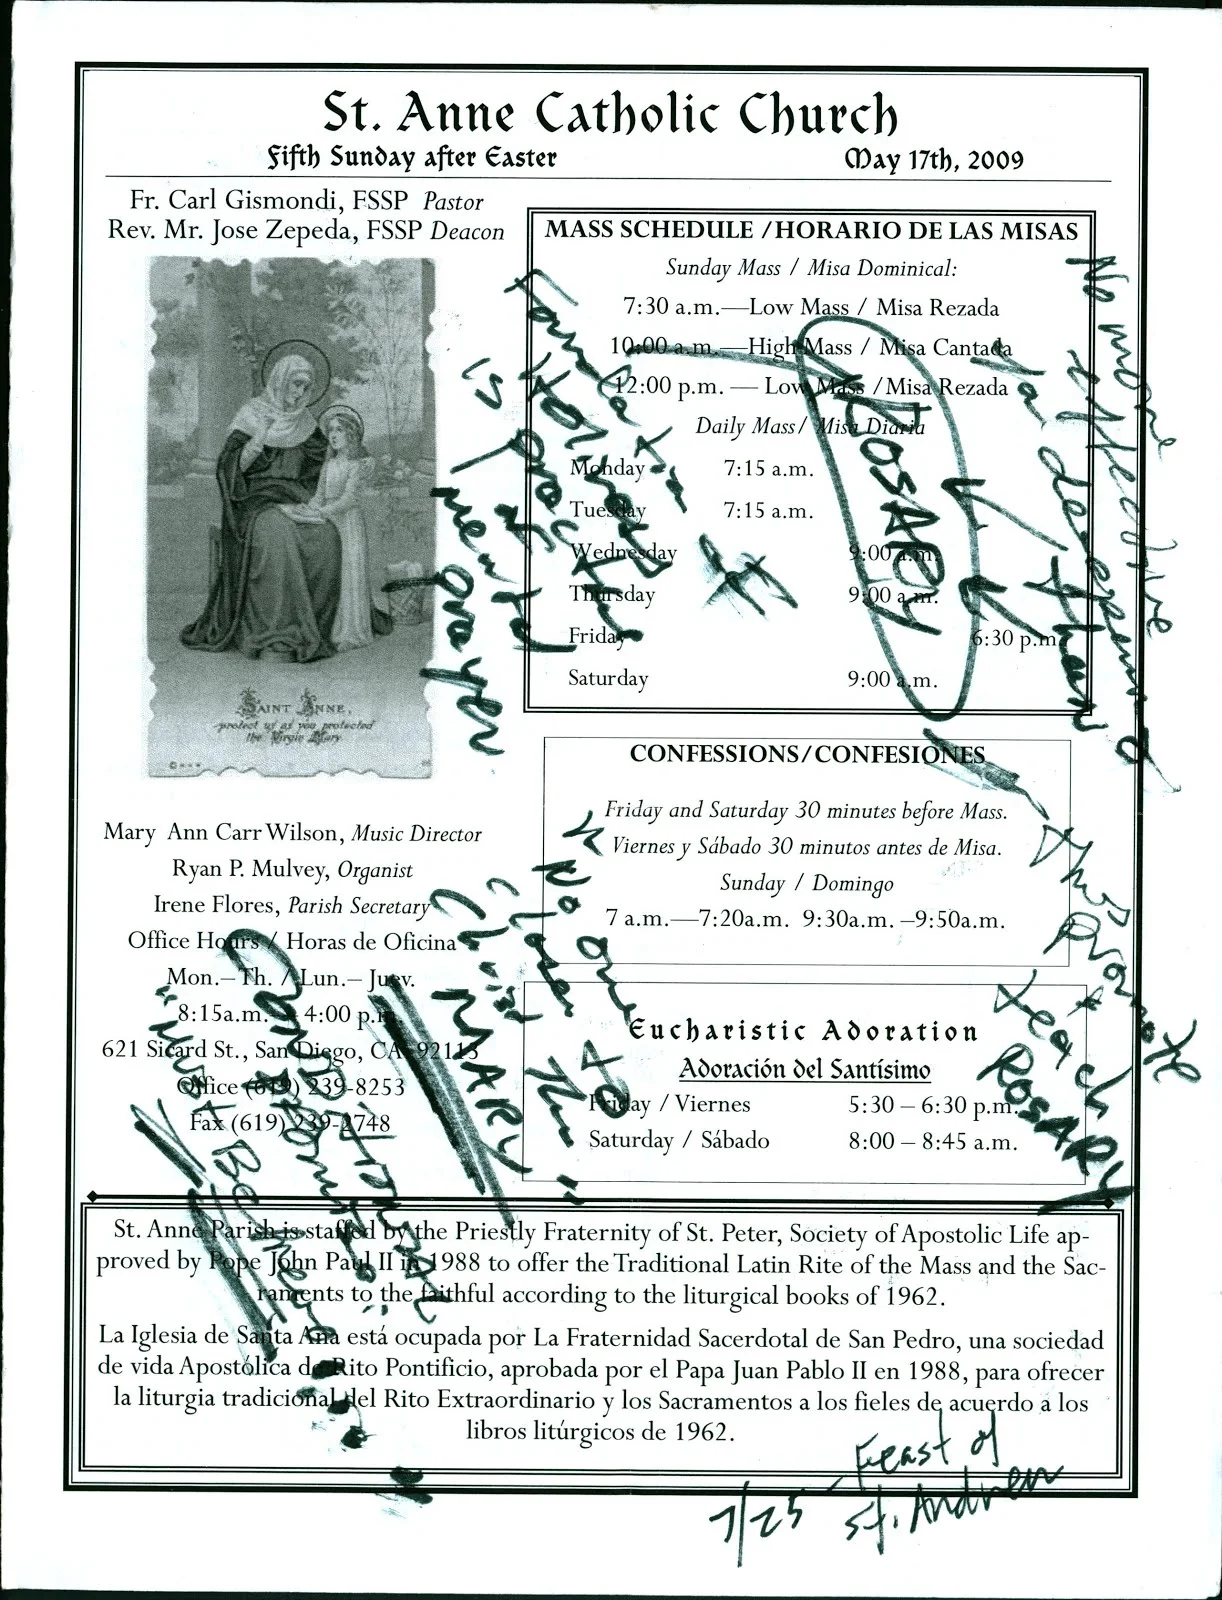 St. Anne Catholic Church
Fifth Sunday after Easter May 17th, 2009
Fr. Carl Gismondi, FSSP Pastor
Rev. Mr. Jose Zepeda, FSSP Deacon
SAINT ANNE,
protect us as you protected
the Virgin Mary
Mary Ann Carr Wilson, Music Director
Ryan P. Mulvey, Organist
Irene Flores, Parish Secretary
Office Hours / Horas de Oficina
Mon.– Th. / Lun.– Juev.
8:15a.m. – 4:00 p.m.
621 Sicard St., San Diego, CA 92113
Office (619) 239-8253
Fax (619) 239-2748
MASS SCHEDULE / HORARIO DE LAS MISAS
Sunday Mass / Misa Dominical:
7:30 a.m.—Low Mass / Misa Rezada
10:00 a.m.—High Mass / Misa Cantada
12:00 p.m. — Low Mass / Misa Rezada
Daily Mass/ Misa Diaria
Monday 7:15 a.m.
Tuesday 7:15 a.m.
Wednesday 9:00 a.m.
Thursday 9:00 a.m.
Friday 6:30 p.m.
Saturday 9:00 a.m.
CONFESSIONS/CONFESIONES
Friday and Saturday 30 minutes before Mass.
Viernes y Sábado 30 minutos antes de Misa.
Sunday / Domingo
7 a.m.—7:20a.m. 9:30a.m. –9:50a.m.
Eucharistic Adoration
Adoración del Santísimo
Friday / Viernes 5:30 – 6:30 p.m.
Saturday / Sábado 8:00 – 8:45 a.m.
St. Anne Parish is staffed by the Priestly Fraternity of St. Peter, Society of Apostolic Life ap-
proved by Pope John Paul II in 1988 to offer the Traditional Latin Rite of the Mass and the Sac-
raments to the faithful according to the liturgical books of 1962.
La Iglesia de Santa Ana está ocupada por La Fraternidad Sacerdotal de San Pedro, una sociedad
de vida Apostólica de Rito Pontificio, aprobada por el Papa Juan Pablo II en 1988, para ofrecer
la liturgia tradicional del Rito Extraordinario y los Sacramentos a los fieles de acuerdo a los
libros litúrgicos de 1962.
No more
effective
way
deepen
than
ROSARY
Foundation
of
is practice
of
mental
prayer
Thus promote
+ teach
ROSARY
"No one
closer to
Christ than
MARY"
"Must Become
7/25 - Feast of
St. Andrew